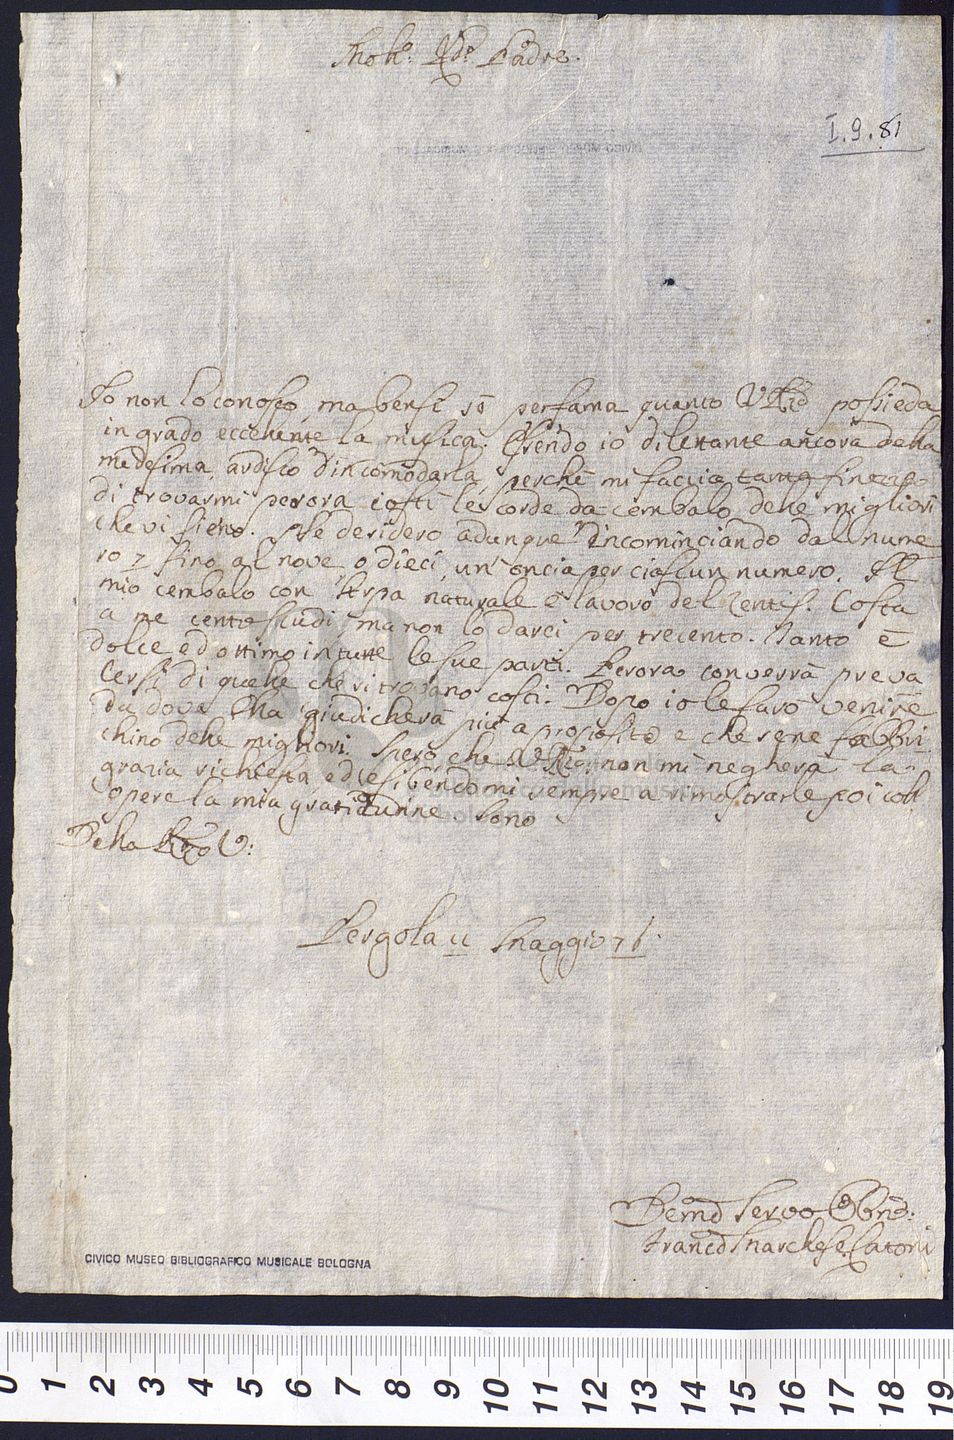 Molto Rdo Padre.
I.9.81
Io non lo conosco, ma bensì sò per fama quanto V Rza possieda
in grado eccellente la musica. Essendo io dilettante ancora della
medesima, ardisco d'incomodarla, perchè mi faccia tanta finezza
di trovarmi per ora costì le corde da cembalo delle migliori
che vi sieno. Ne desidero adunque, incominciando dal nume
ro 7 fino al nove, o dieci, un'oncia per ciascun numero. Il
mio cembalo con Arpa naturale è lavoro del Zentis. Costa
a me cento scudi, ma non lo darei per trecento. Tanto è
dolce ed ottimo in tutte le sue parti. Per ora converrà preva
lersi di quelle che si trovano costì. Dopo io le farò venire
da dove Ella giudicherà più a proposito e che se ne fabbri
chino delle migliori. Spero, che V Rza non mi negherà la
grazia richiesta, ed esibendomi sempre a rimostrarle poi coll
opere la mia gratitudine. Sono
Della Rza V:
Pergola 11 Maggio 71.
Devmo Servo Obbmo:
Franco Marchese
CIVICO MUSEO BIBLIOGRAFICO MUSICALE BOLOGNA
0 1 2 3 4 5 6 7 8 9 10 11 12 13 14 15 16 17 18 19